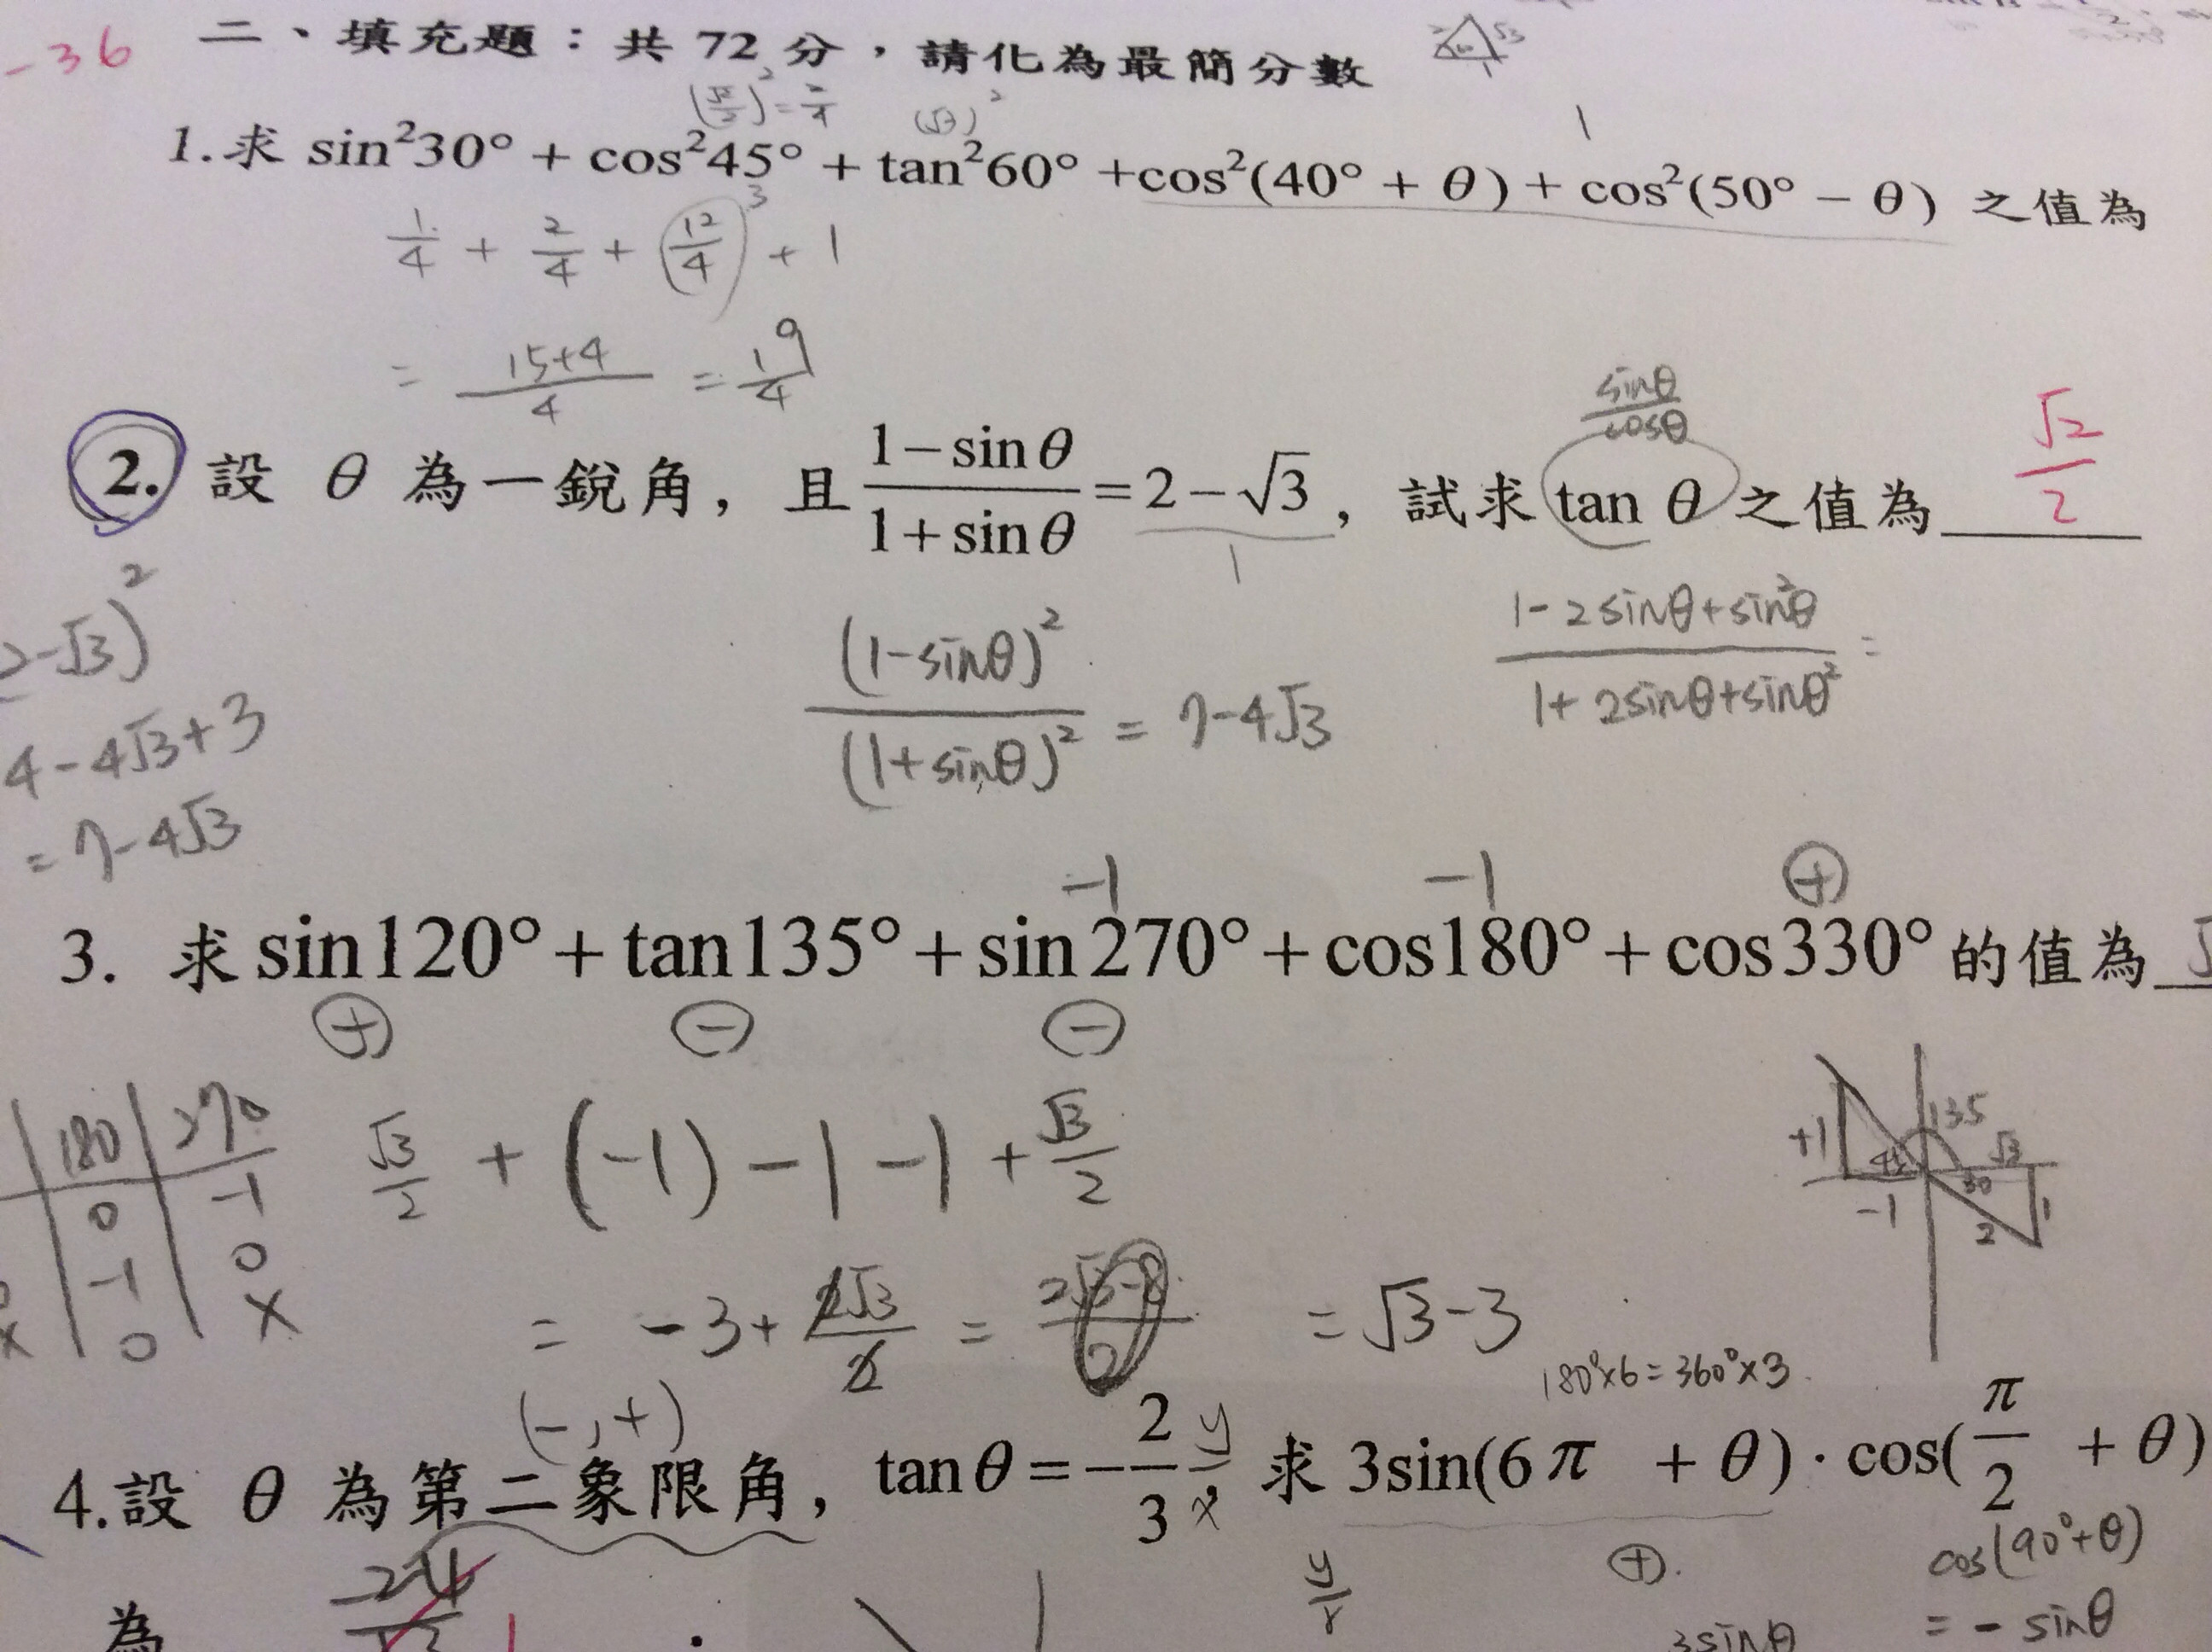 -36
二、填充題：共 72 分，請化為最簡分數
(√2/2)² = 2/4 (√3)² 1
1.求 sin²30° + cos²45° + tan²60° +cos²(40° + θ) + cos²(50° − θ) 之值為
1/4 + 2/4 + 12/4 3 + 1
= (15+4)/4 = 19/4
sinθ/cosθ
2. 設 θ 為一銳角，且 (1−sinθ)/(1+sinθ) = 2−√3，試求 tan θ 之值為 √2/2
1
2-√3)²
4-4√3+3
= 7-4√3
(1-sinθ)²/(1+sinθ)² = 7-4√3
(1-2sinθ+sin²θ)/(1+2sinθ+sinθ²) =
-1 -1 +
3. 求 sin120°+tan135°+sin270°+cos180°+cos330° 的值為
+ − −
180 270
0 -1
-1 0
0 x
√3/2 + (-1) -1 -1 + √3/2
= -3+ 2√3/2 = = √3-3
135
+1 45 √3
-1 30 1
2
180°×6=360°×3
(-,+)
4.設 θ 為第二象限角，tanθ = −2/3 y/x 求 3sin(6π + θ)·cos(π/2 + θ)
為
y/r
+
cos(90°+θ)
= - sinθ
3sinθ